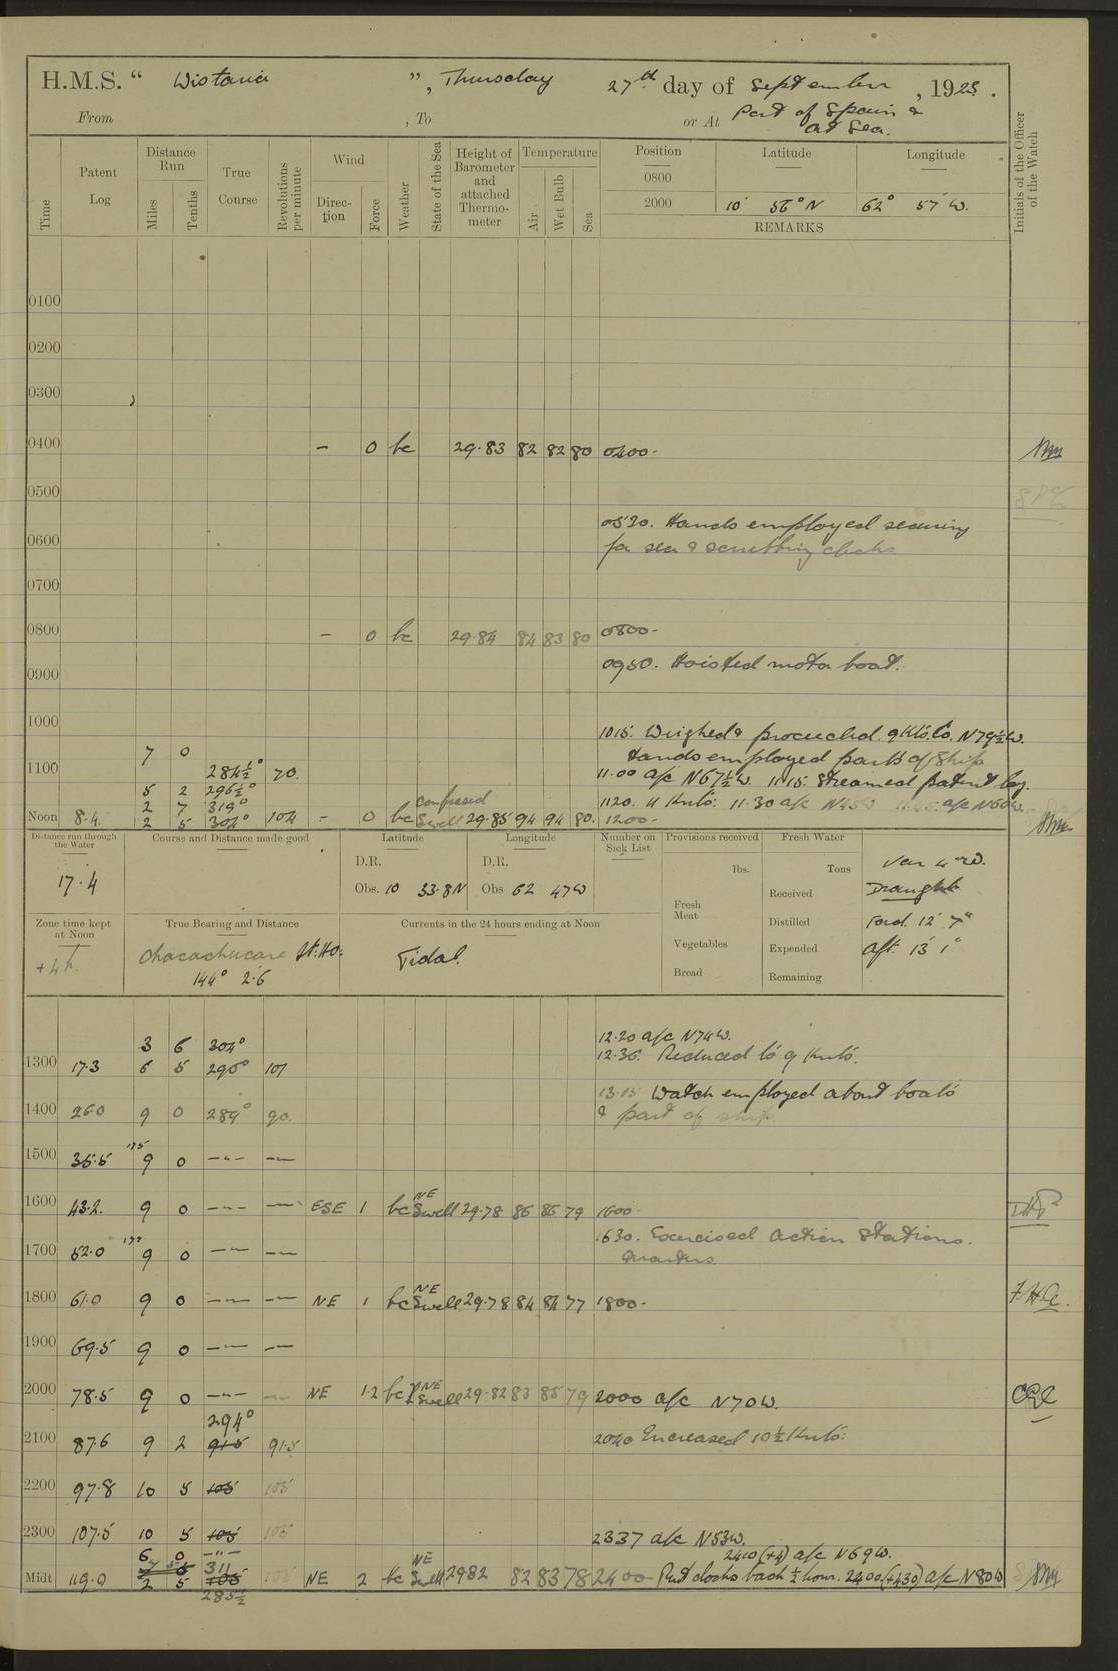 H.M.S. “ Wistaria ”, Thursday 27th day of September , 1923.
From , To or At Port of Spain &
at Sea.
Time
Patent Log
Distance Run
Miles
Tenths
True Course
Revolutions per minute
Wind
Direction
Force
Weather
State of the Sea
Height of Barometer and attached Thermometer
Temperature
Air
Wet Bulb
Sea
Position Latitude Longitude
0800
2000 10 56° N 62° 57' W.
REMARKS
Initials of the Officer of the Watch
0100
0200
0300
0400 – 0 bc 29.83 82 82 80 0400-
0500
0530. Hands employed securing
0600 for sea & scrubbing decks
0700
0800 – 0 bc 29.84 84 83 80 0800-
0900 0950. Hoisted motor boat.
1000
1015. Weighed & proceeded. 9 Kts. Co. N79½W.
7 0 Hands employed parts of Ship
1100 284½° 70. 11.00 a/c N67½W. 1115. Streamed patent log.
5 2 296½°
2 7 319° confused 1120. 11 Knts. 11.30 a/c N45W a/c N60W.
Noon 8.4. 2 5 304° 104 – 0 bc Swell 29.85 94 94 80. 1200-
Distance run through the Water
17.4
Course and Distance made good
Latitude
D.R.
Obs. 10 33.8N
Longitude
D.R.
Obs 62 47W
Number on Sick List
Provisions received
lbs.
Fresh Meat
Vegetables
Bread
Fresh Water
Tons
Received
Distilled
Expended
Remaining
Var 4° W.
Draught
Ford. 12' 7"
Aft. 13' 1"
Zone time kept at Noon
+4h.
True Bearing and Distance
Chacachacare Lt. Ho:
144° 2.6
Currents in the 24 hours ending at Noon
Tidal.
3 6 304° 12.20 a/c N74W.
1300 17.3 6 5 290° 107 12.36. Reduced to 9 Knts.
13.15 Watch employed about boats
1400 26.0 9 0 289° 90. & part of ship.
1500 35.5 9 0 –"– –"–
1600 43.2. 9 0 –"– –"– ESE 1 bc NE Swell 29.78 86 85 79 1600-
1630. Exercised Action Stations.
1700 52.0 9 0 –"– –"– Quarters
1800 61.0 9 0 –"– –"– NE 1 bc NE Swell 29.78 84 84 77 1800-
1900 69.5 9 0 –"– –"–
2000 78.5 9 0 –"– –"– NE 1.2 bc NE Swell 29.82 83 85 79 2000 a/c N70W.
294°
2100 87.6 9 2 915 91.5 2040 Increased 10½ Knts:
2200 97.8 10 5 105 105
2300 107.5 10 5 105 105 2337 a/c N53W.
6 0 –"– 2400(+4) a/c N69W.
Midt 119.0 2 5 311 105 NE 2 bc NE Swell 2982 82 83 78 2400- Put clocks back ½ hour. 2400(+430) a/c N80W
285½